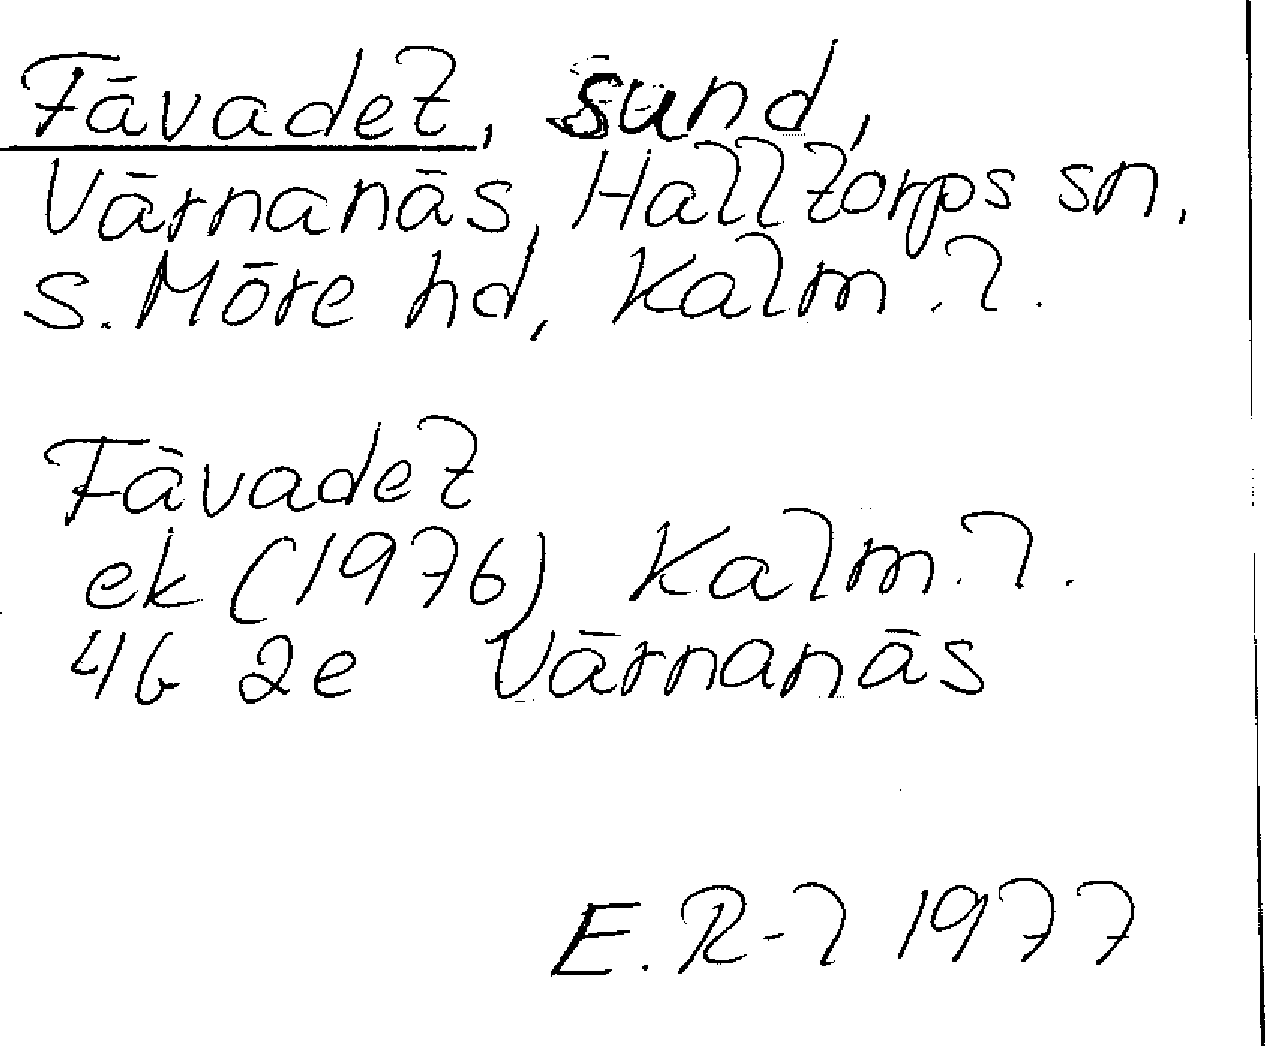 Fävadet, sund,
Värnanäs, Halltorps sn,
S. Möre hd, Kalm. l.
Fävadet
ek (1976) Kalm. l.
4G 2e Värnanäs
E. R-l 1977